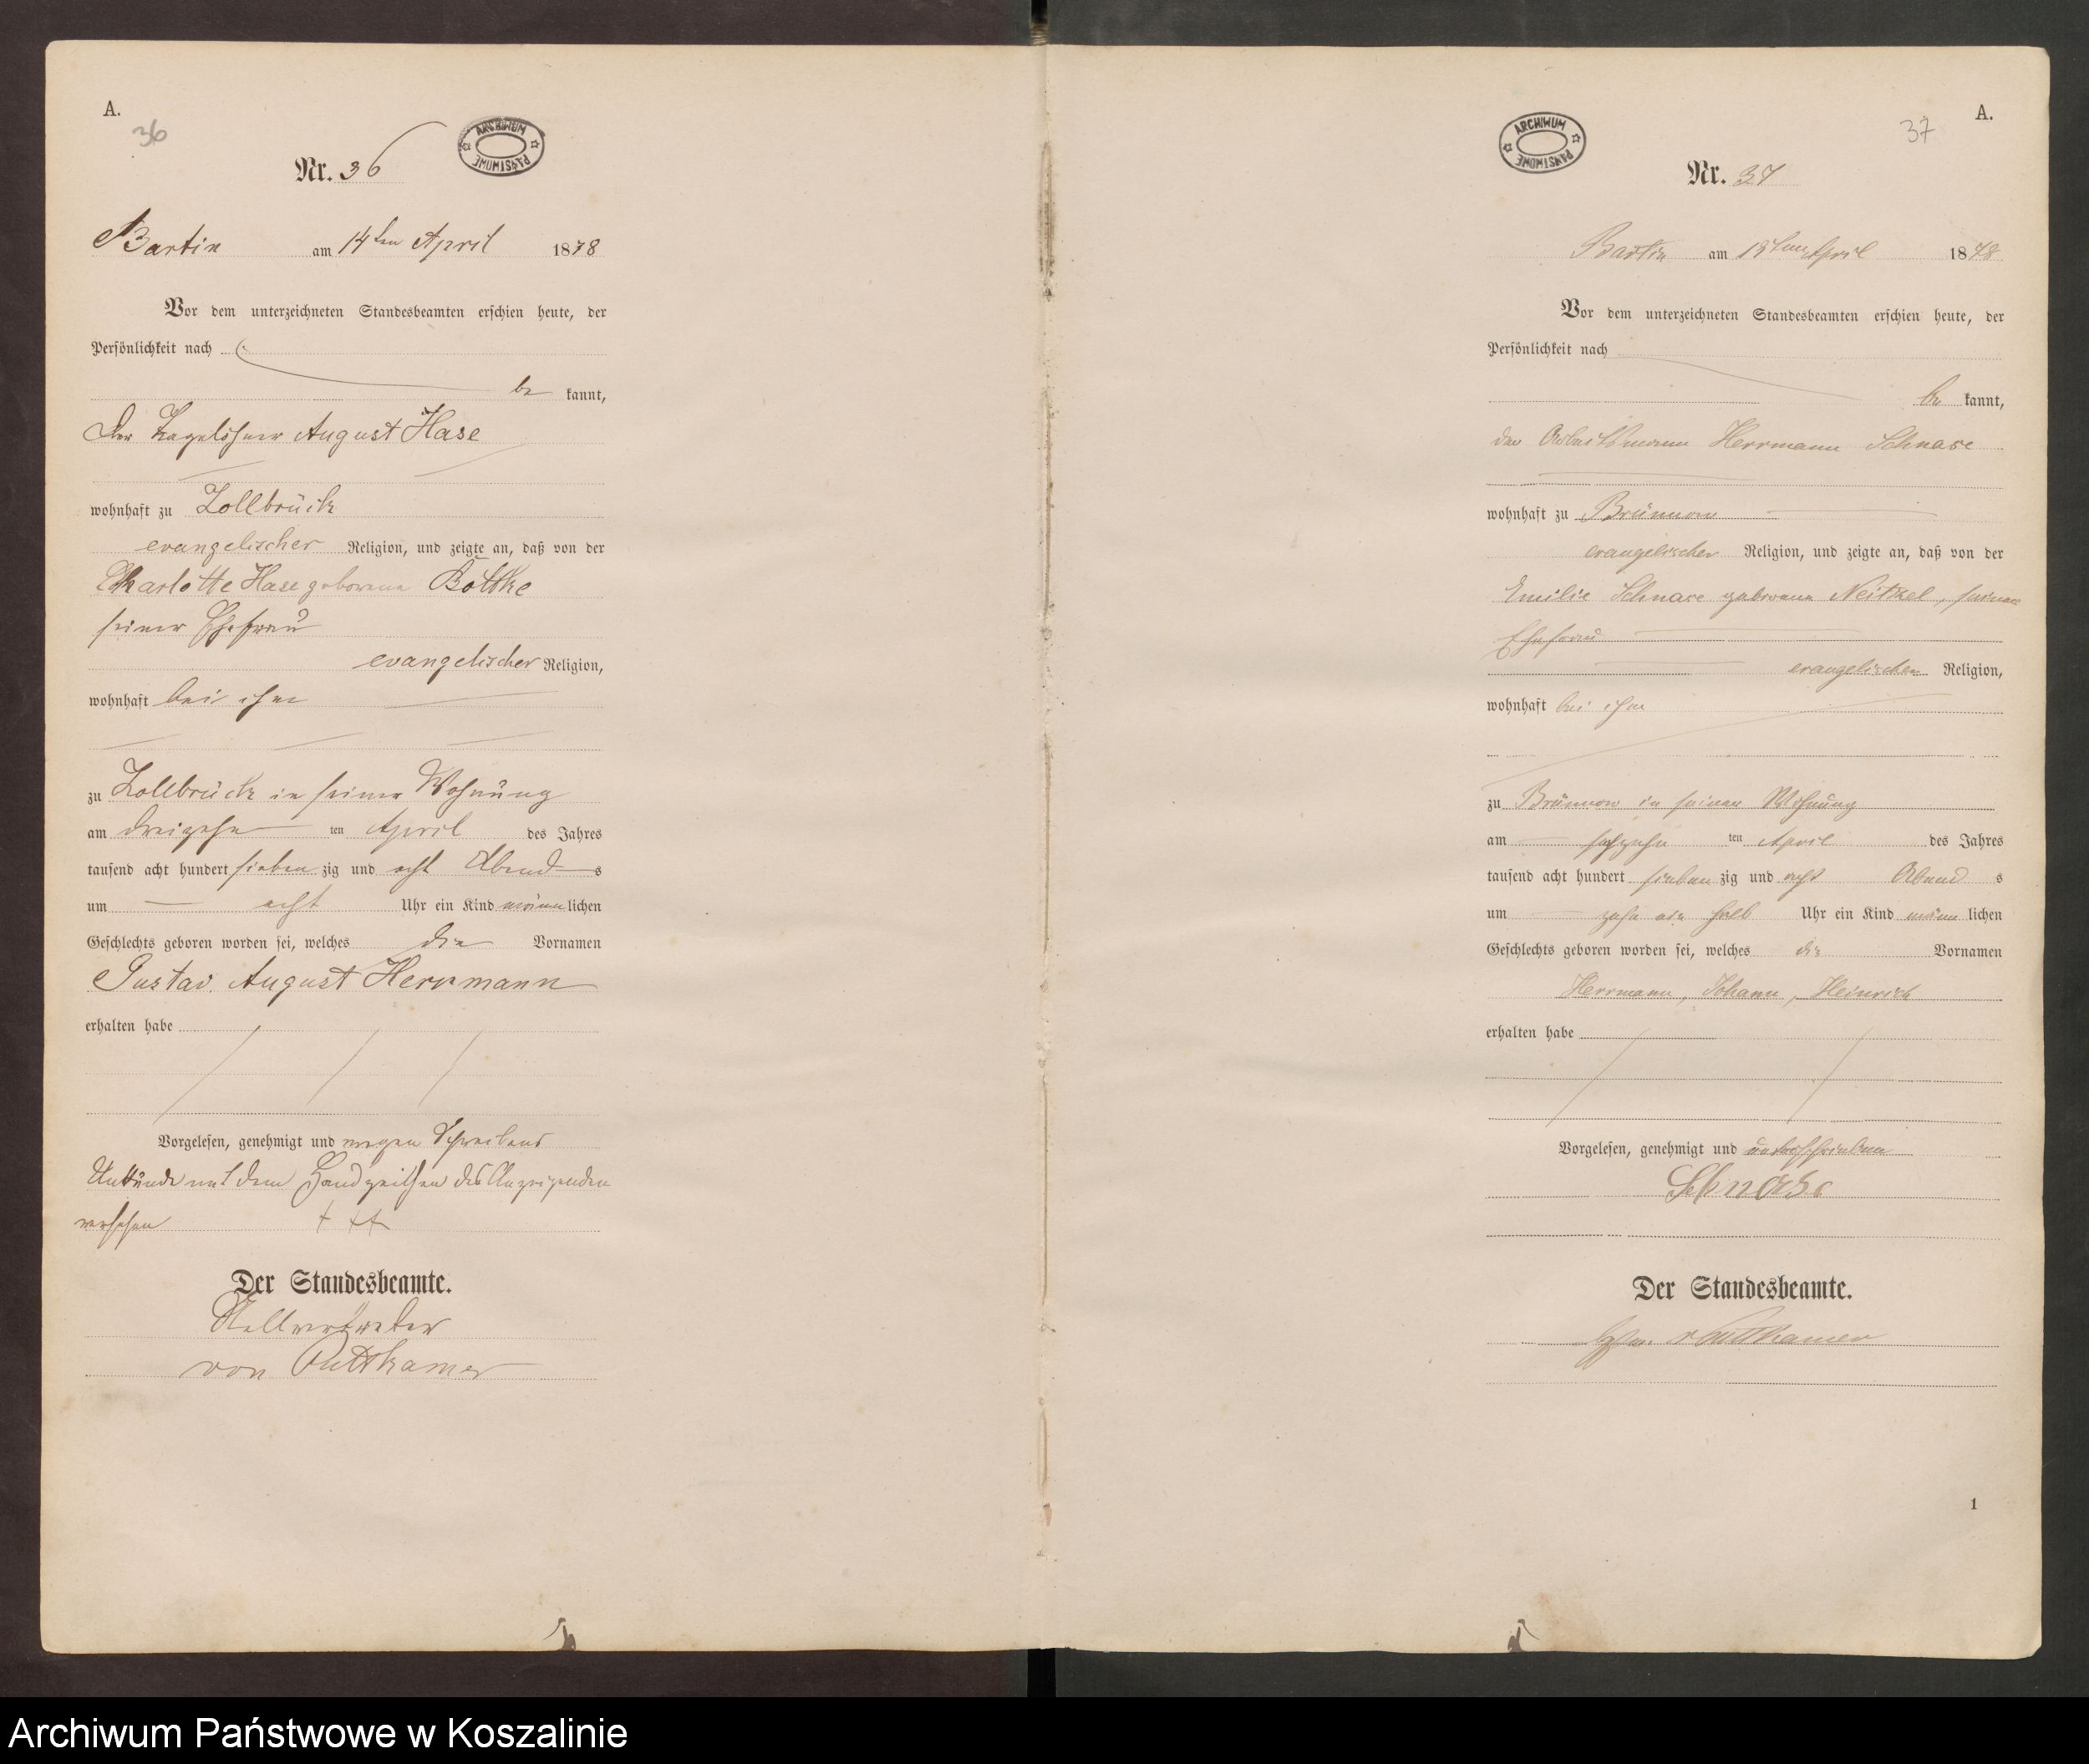 A.
36
ARCHIWUM
PAŃSTWOWE
Nr. 36
Bartin am 14ten April 1878
Vor dem unterzeichneten Standesbeamten erschien heute, der
Persönlichkeit nach
be kannt,
der Tagelöhner August Hase
wohnhaft zu Zollbrück
evangelischer Religion, und zeigte an, daß von der
Charlotte Hase geborene
seiner Ehefrau
evangelischer Religion,
wohnhaft bei ihm
zu Zollbrück in seiner Wohnung
am dreizehn ten April des Jahres
tausend acht hundert sieben zig und acht Abend s
um acht Uhr ein Kind männ lichen
Geschlechts geboren worden sei, welches die Vornamen
Gustav August Herrmann
erhalten habe
Vorgelesen, genehmigt und wegen Schreibens
Unkunde mit dem Handzeichen des Anzeigenden
versehen + ++
Der Standesbeamte.
Stellvertreter
von Puttkamer
A.
37
ARCHIWUM
PAŃSTWOWE
Nr. 37
Bartin am April 1878
Vor dem unterzeichneten Standesbeamten erschien heute, der
Persönlichkeit nach
be kannt,
der Arbeitsmann Herrmann Schnase
wohnhaft zu Brünnow
evangelischer Religion, und zeigte an, daß von der
Emilie Schnase geborene Neitzel, seiner
Ehefrau
evangelischer Religion,
wohnhaft bei ihm
zu Brünnow in seiner Wohnung
am sechzehn ten April des Jahres
tausend acht hundert sieben zig und acht Abend s
um zehn ein halb Uhr ein Kind männ lichen
Geschlechts geboren worden sei, welches die Vornamen
Herrmann, Johann, Heinrich
erhalten habe
Vorgelesen, genehmigt und unterschrieben
Schnase
Der Standesbeamte.
v Puttkamer
1
Archiwum Państwowe w Koszalinie